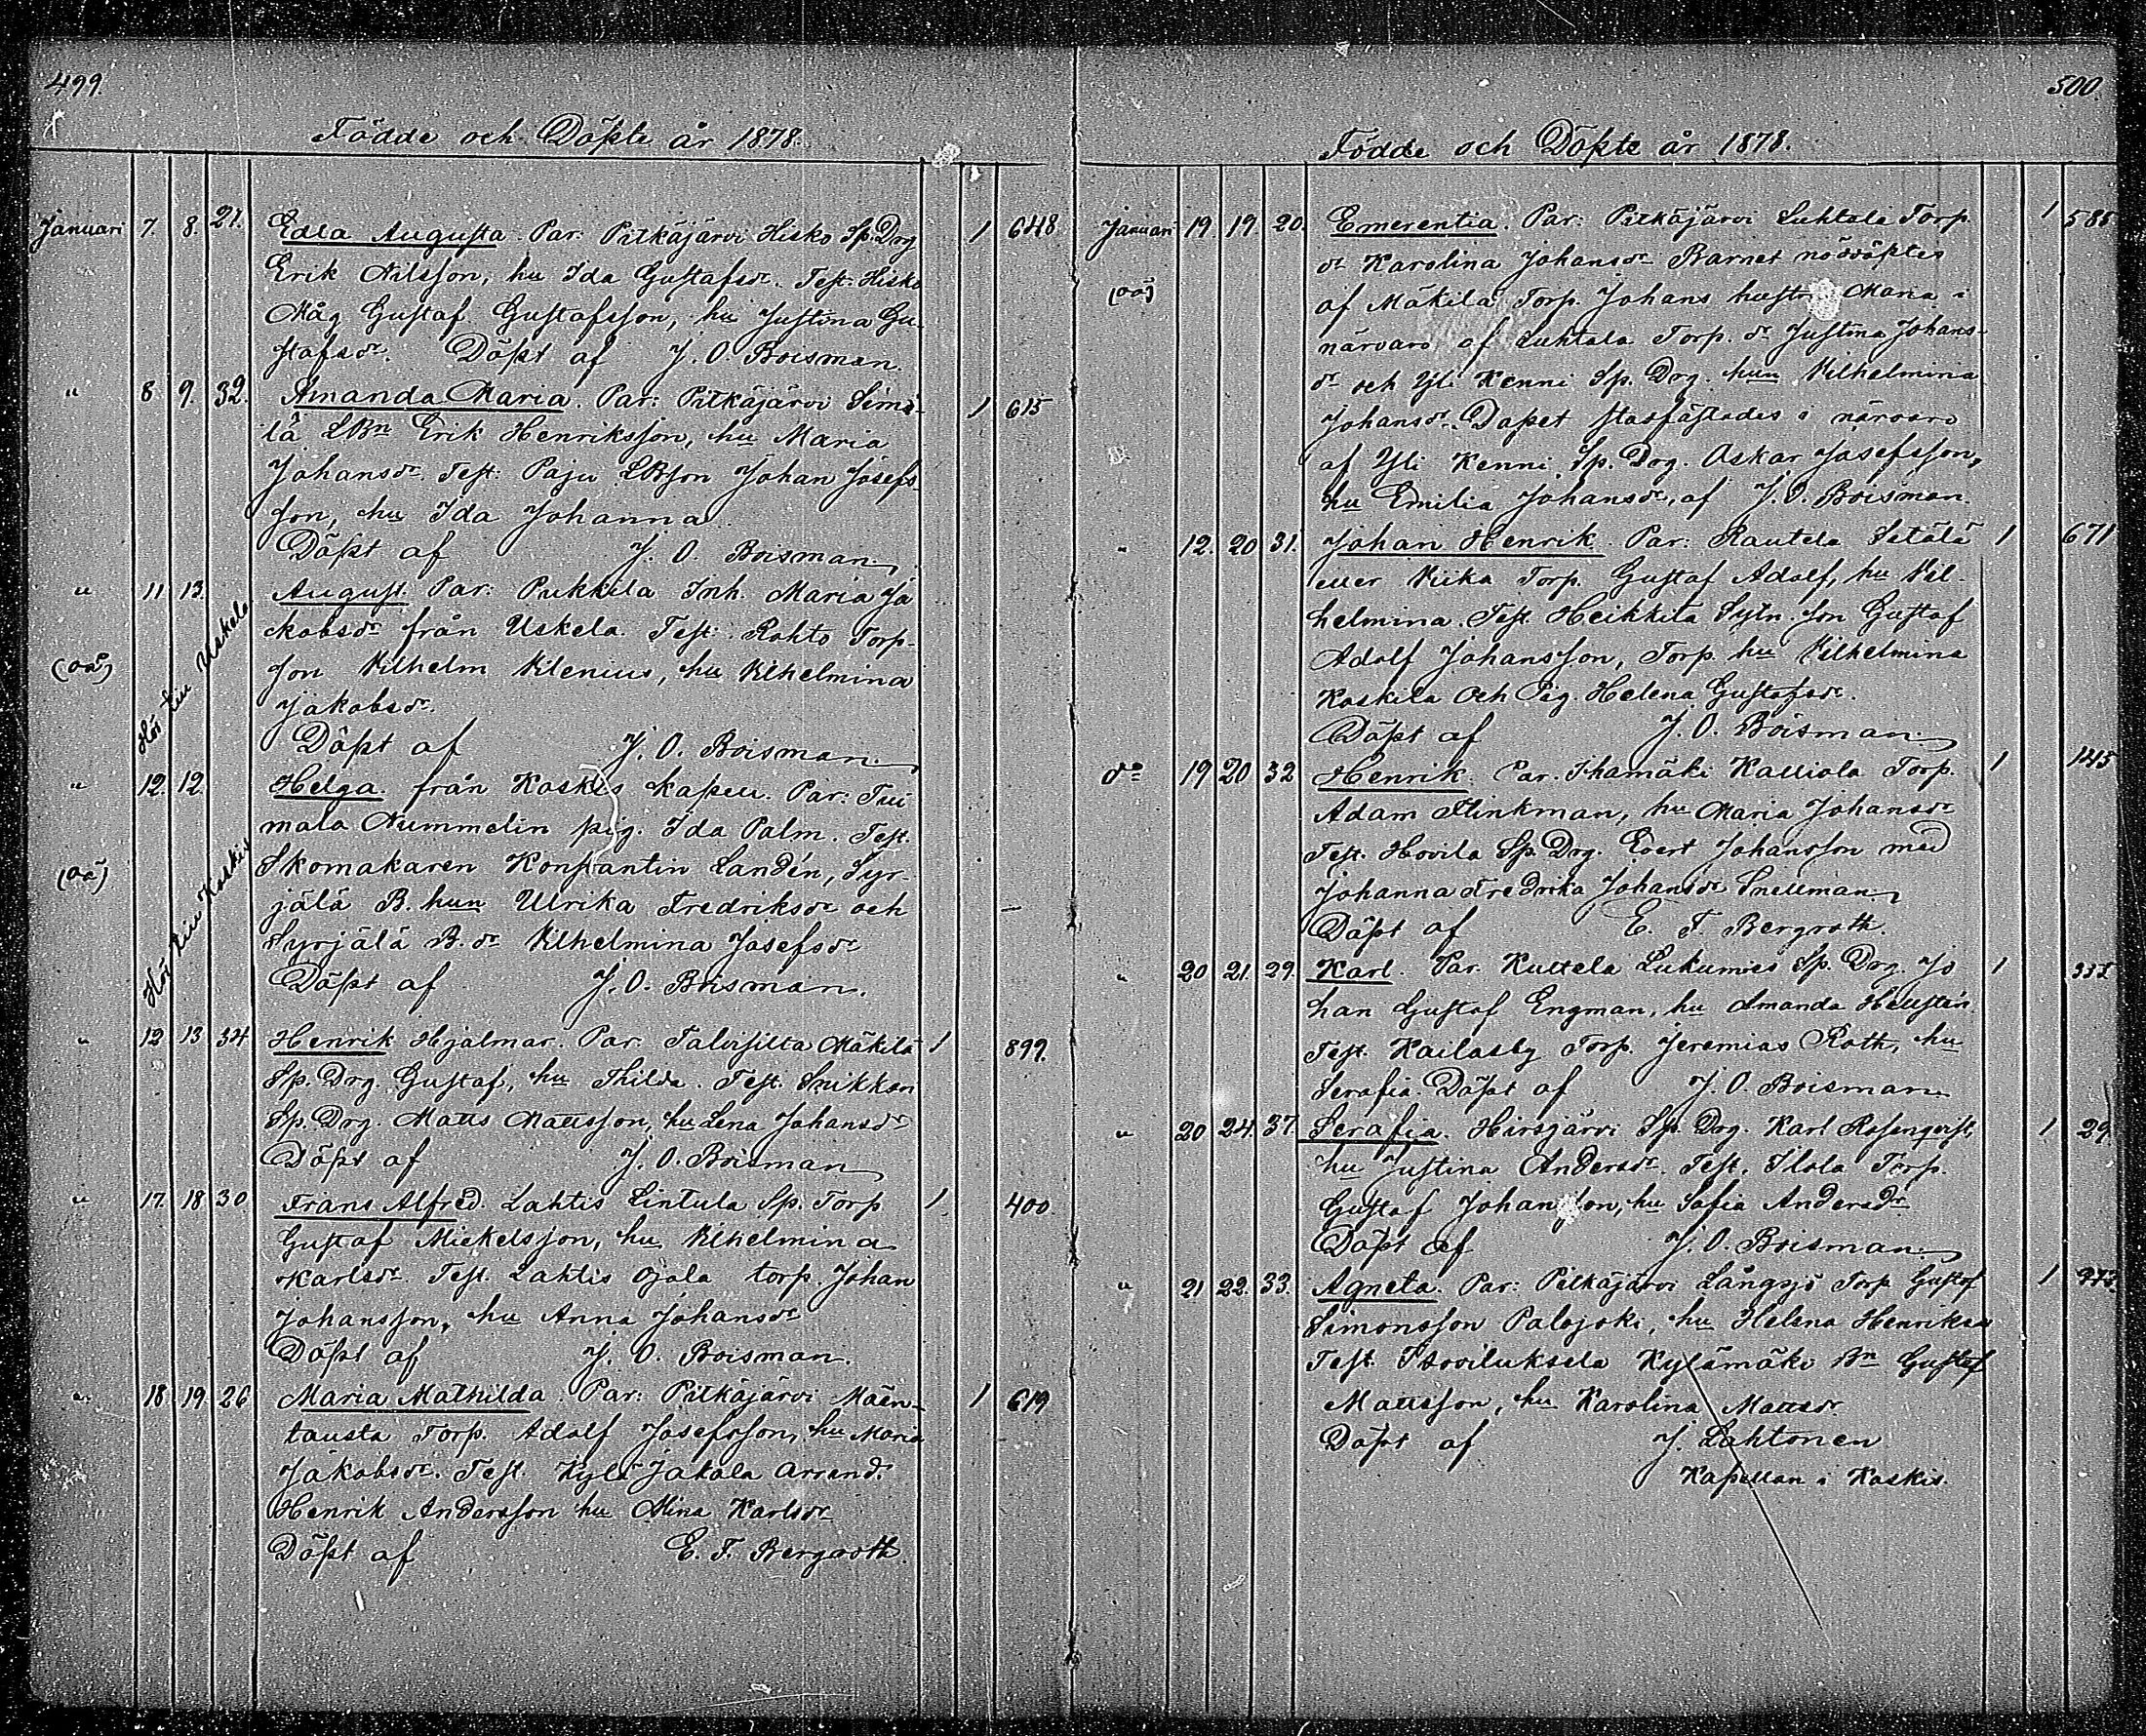 499.
Födde och Döpte år 1878.
Januari 7. 8. 21. Edla Augusta. Par: Pitkäjärvi Hisko Sp. Drg 1 648
Erik Nilsson, hu Ida Gustafsdr. Test: Hisko
Måg Gustaf Gustafsson, hu Justina Gu-
stafsdr. Döpt af J. O. Boisman.
" 8. 9. 32. Amanda Maria. Par: Pitkäjärvi Simo- 1 615
lä LBn Erik Henriksson, hu Maria
Johansdr. Test: Paju LBson Johan Josefs-
son, hu Ida Johanna.
Döpt af J. O. Boisman.
" 11 13. August. Par: Pukkila Inh. Maria Ja
kobsdr från Uskela. Test: Rohto Torp-
(oä) Hör till Uskela
son Vilhelm Vilenius, hu Vilhelmina
Jakobsdr.
Döpt af J. O. Boisman.
" 12. 12. Helga. från Koskis kapell. Par: Tui
mala Nummelin pig. Ida Palm. Test.
(oä) Hör till Koskis
Skomakaren Konstantin Landén, Syr-
jälä B. hun Ulrika Fredriksdr och —
Syrjälä B. dr Vilhelmina Josefsdr
Döpt af J. O. Boisman.
" 12 13 34 Henrik Hjalmar. Par. Talvisilta Mäkilä 1 899.
Sp. Drg. Gustaf, hu Thilda. Test. Snikkar
Sp. Drg. Matts Mattsson, hu Lena Johansdr
Döpt af J. O. Boisman
" 17. 18 30 Frans Alfred. Lahtis Lintula Sp. Torp 1. 400.
Gustaf Mickelsson, hu Vilhelmina
Karlsdr. Test. Lahtis Ojala torp. Johan
Johansson, hu Anna Johansdr
Döpt af J. O. Boisman.
" 18. 19 26 Maria Mathilda. Par: Pitkäjärvi Mäen- 1 619
tausta Torp. Adolf Josefsson, hu Maria
Jakobsdr. Test. Kylä Jakala Arrend.
Henrik Andersson hu Mina Karlsdr
Döpt af E. F. Bergroth.
500.
Födde och Döpte år 1878.
Januari 19. 19. 20. Emerentia. Par: Pitkäjärvi Luhtala Torp 1 585
dr Karolina Johansdr Barnet nöddöptes
(oä)
af Mäkilä Torp. Johans hustru Maria i
närvaro af Luhtala Torp. dr Justina Johans-
dr och Yli Kenni Sp. Drg. hun Vilhelmina
Johansdr. Dopet stadfästades i närvaro
af Yli Kenni Sp. Drg. Oskar Josefsson,
hu Emilia Johansdr, af J. O. Boisman.
" 12. 20 31. Johan Henrik. Par: Rautela Setälä 1 671
eller Viika Torp. Gustaf Adolf, hu Vil-
helmina. Test. Heikkilä Sytn. son Gustaf
Adolf Johansson, Torp. hu Vilhelmina
Koskila och Pig. Helena Gustafsdr.
Döpt af J. O. Boisman.
do 19 20 32 Henrik. Par. Ihamäki Kalliola Torp. 1 145
Adam Flinkman, hu Maria Johansdr
Test. Hovila Sp. Drg. Evert Johansson med
Johanna Fredrika Johansdr Snellman.
Döpt af E. F. Bergroth.
" 20 21. 29. Karl. Par. Kultela Lukumies Sp. Drg. Jo 1
han Gustaf Engman, hu Amanda Hellstén.
Test. Kailasby Torp. Jeremias Roth, hu
Serafia. Döpt af J. O. Boisman.
" 20 24. 37. Serafia. Hirsjärvi Sp. Drg. Karl Rosenqvist, 1 29
hu Justina Andersdr. Test. Ilola Torp.
Gustaf Johansson, hu Sofia Andersdr
Döpt af J. O. Boisman.
" 21 22. 33. Agneta. Par: Pitkäjärvi Långsjö Torp Gustaf 1
Simonsson Palojoki, hu Helena Henriksdr
Test. Kylämäki Bn Gustaf
Mattsson, hu Karolina Mattsdr.
Döpt af J. Lahtonen
Kapellan i Koskis.